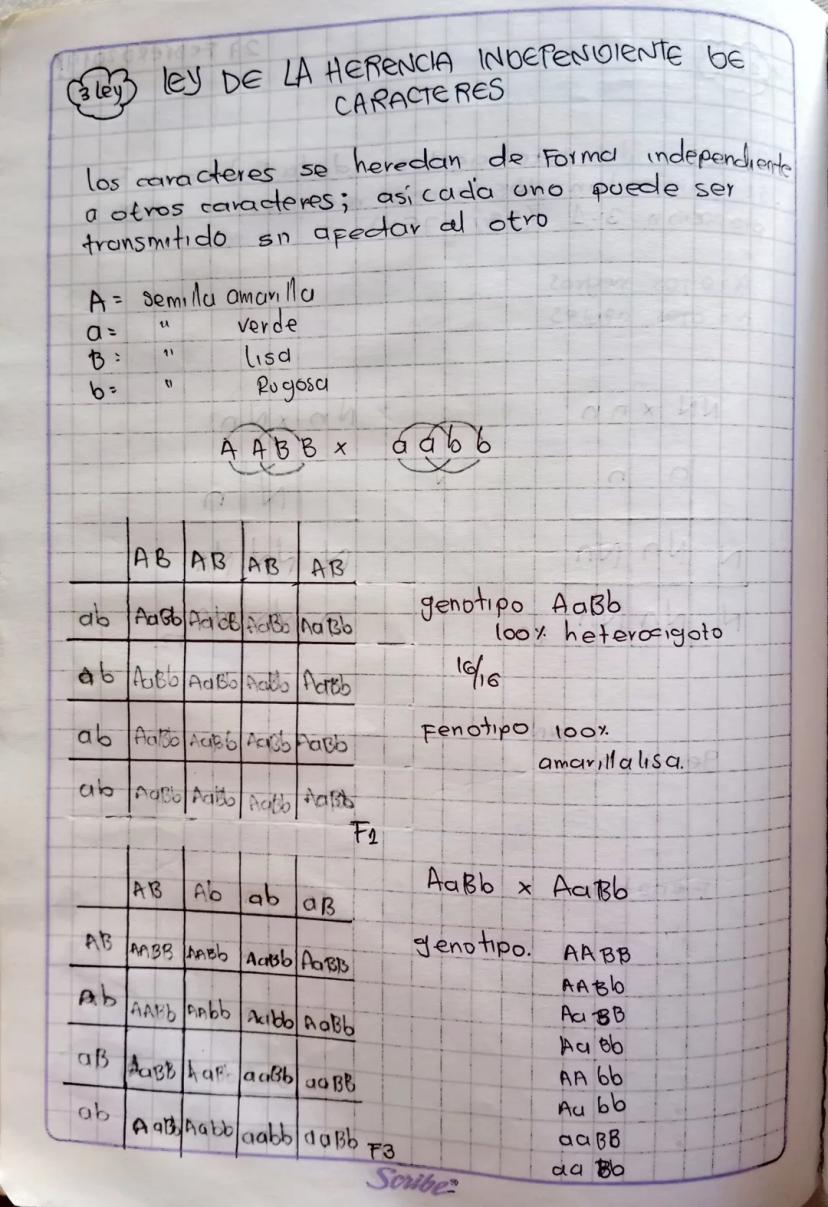 3 ley
ley DE LA HERENCIA INDEPENDIENTE DE
CARACTERES
los caracteres se heredan de Forma independiente
a otros caracteres; así cada uno puede ser
transmitido sn afectar al otro
A = semilla amarilla
a = " verde
B = " lisa
b = " Rugosa
A A B B x a a b b
AB AB AB AB
ab AaBb AaBb AaBb AaBb
ab AaBb AaBb AaBb AaBb
ab AaBb AaBb AaBb AaBb
ab AaBb AaBb AaBb AaBb
F1
genotipo AaBb
100% heterocigoto
16/16
Fenotipo 100%
amarilla lisa.
AB Ab ab aB
AB AABB AABb AaBb AaBB
Ab AABb AAbb Aabb AaBb
aB AaBB aaBb aaBB
ab Aabb aabb aaBb
F3
AaBb x AaBb
genotipo. AABB
AABb
AaBB
AaBb
AAbb
Aabb
aaBB
aaBb
Scribe